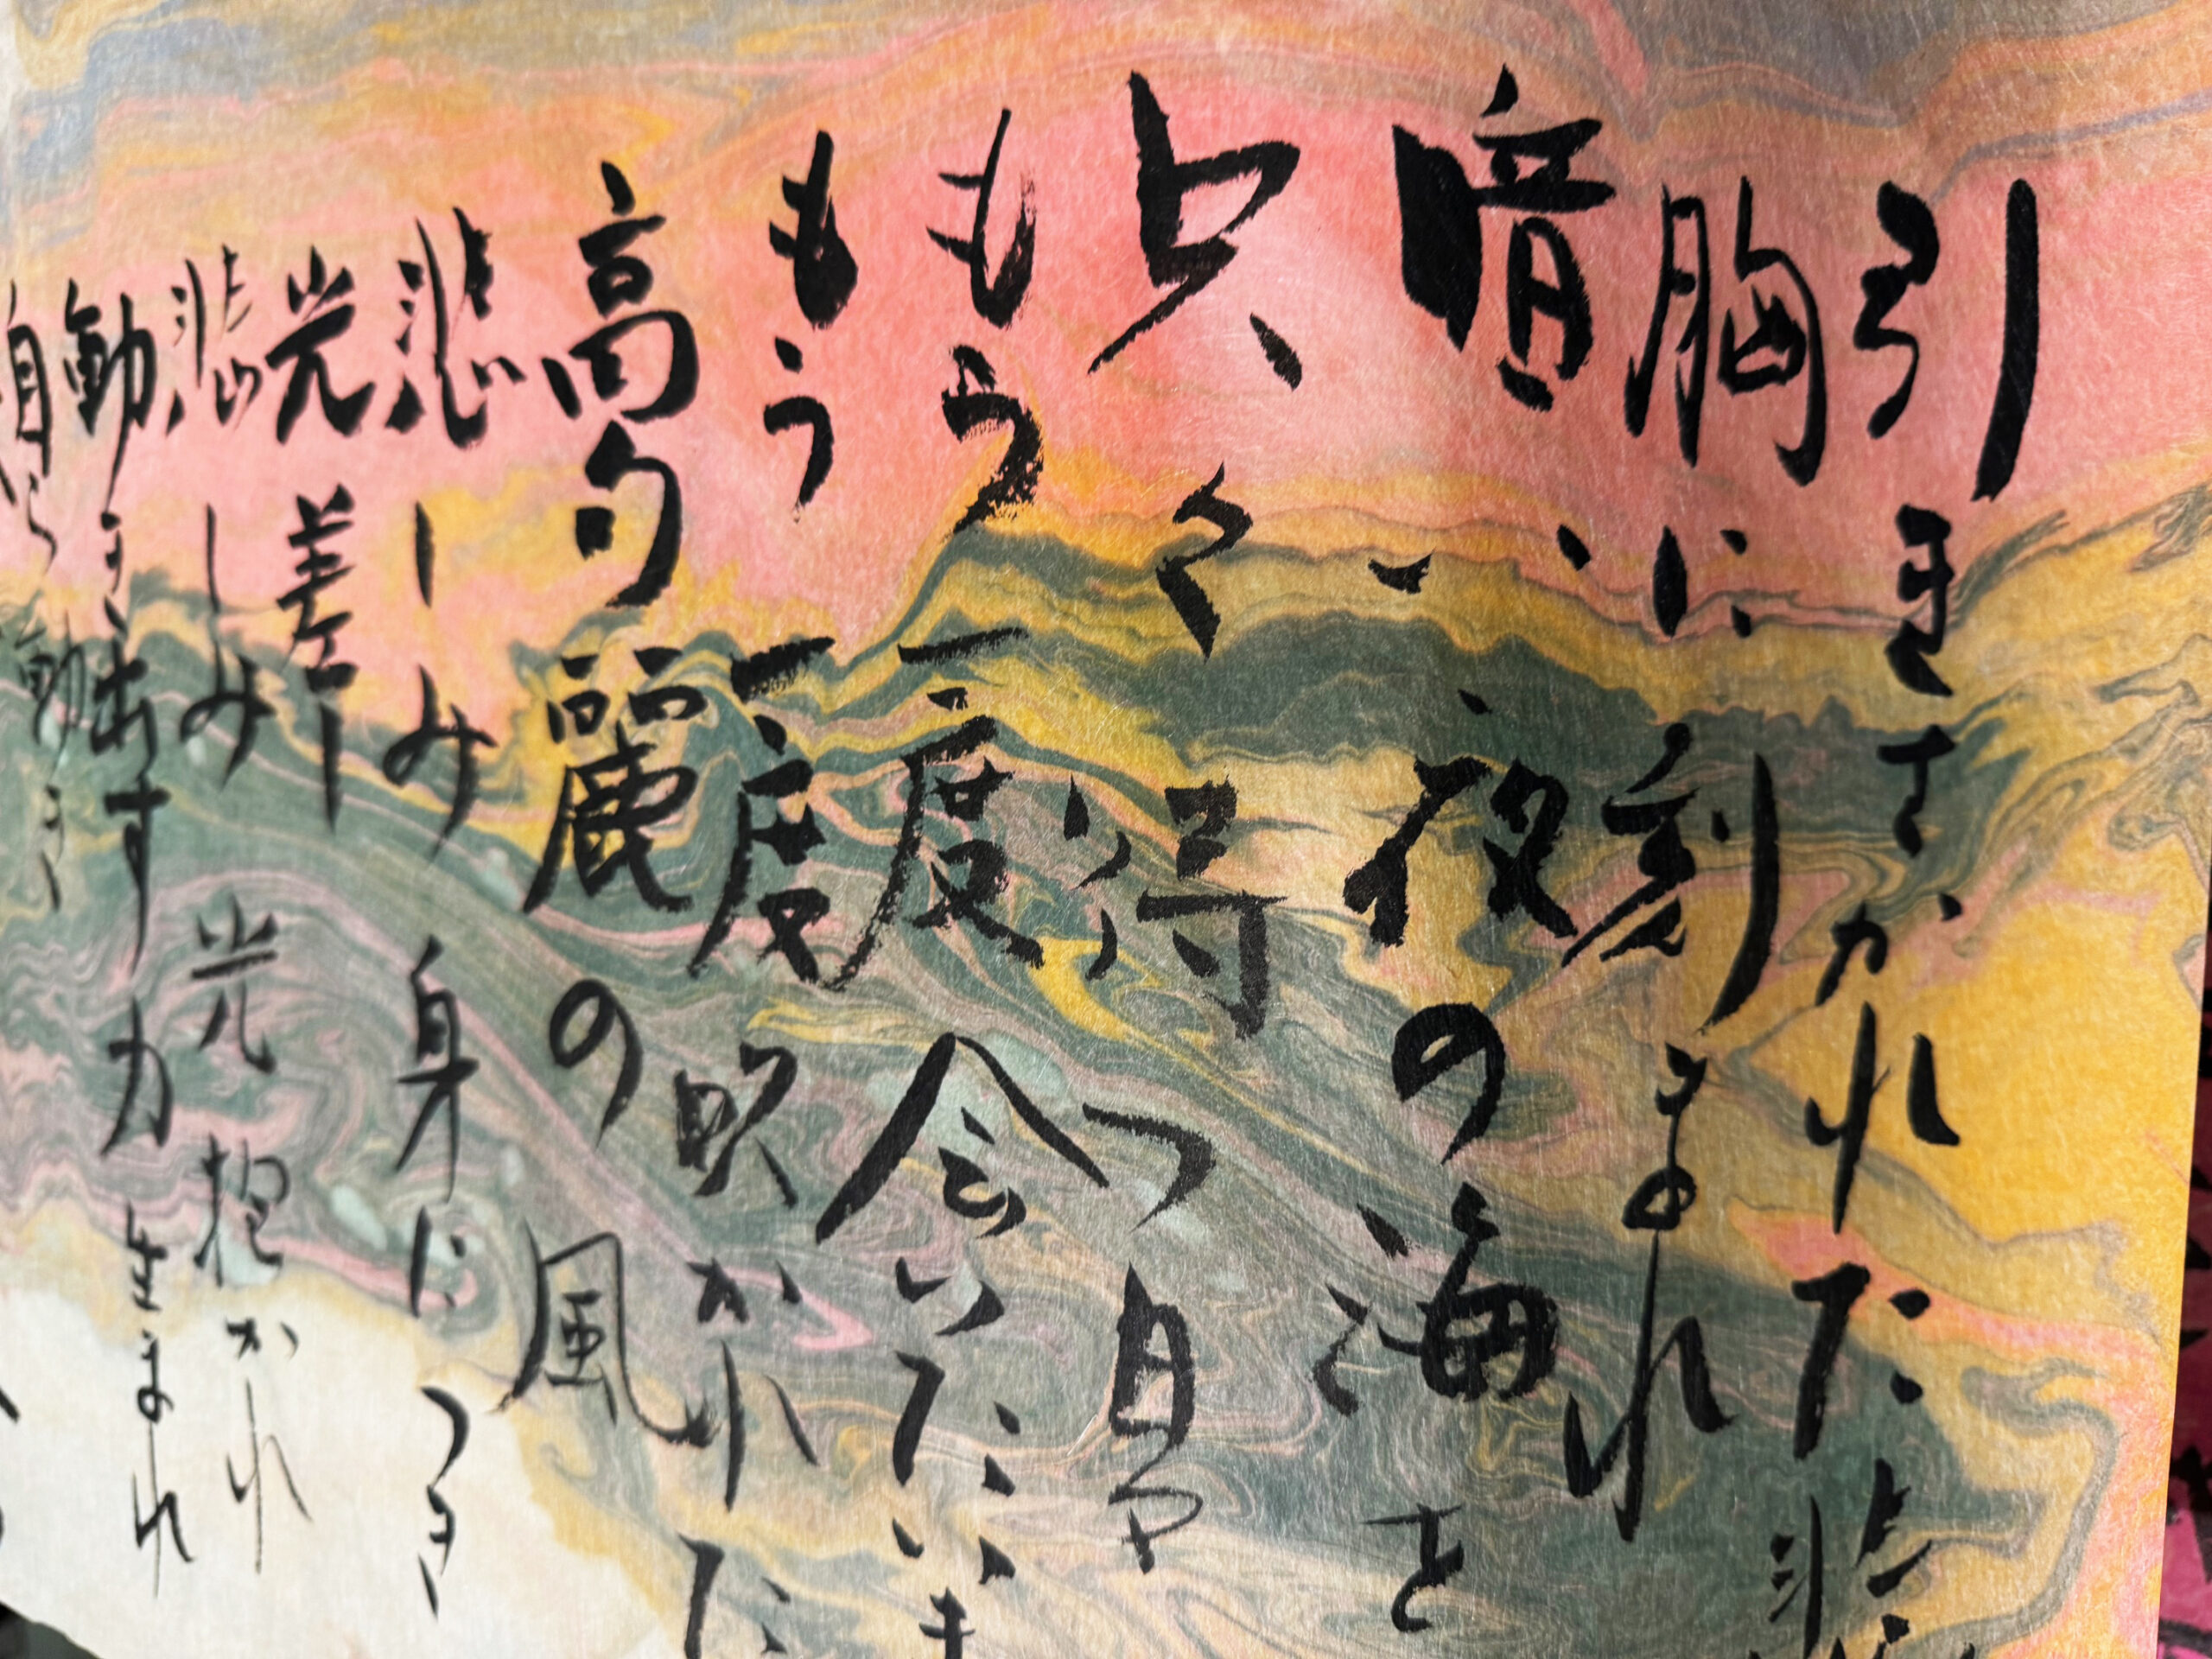 引きさかれた悲
胸に刻まれ
暗い夜の海を
只々待つ
もう一度会いたい
もう一度吹かれた
高句麗の風
悲しみ身につき
光差し
悲しみ光抱かれ
動き出す力生まれ
自ら動き